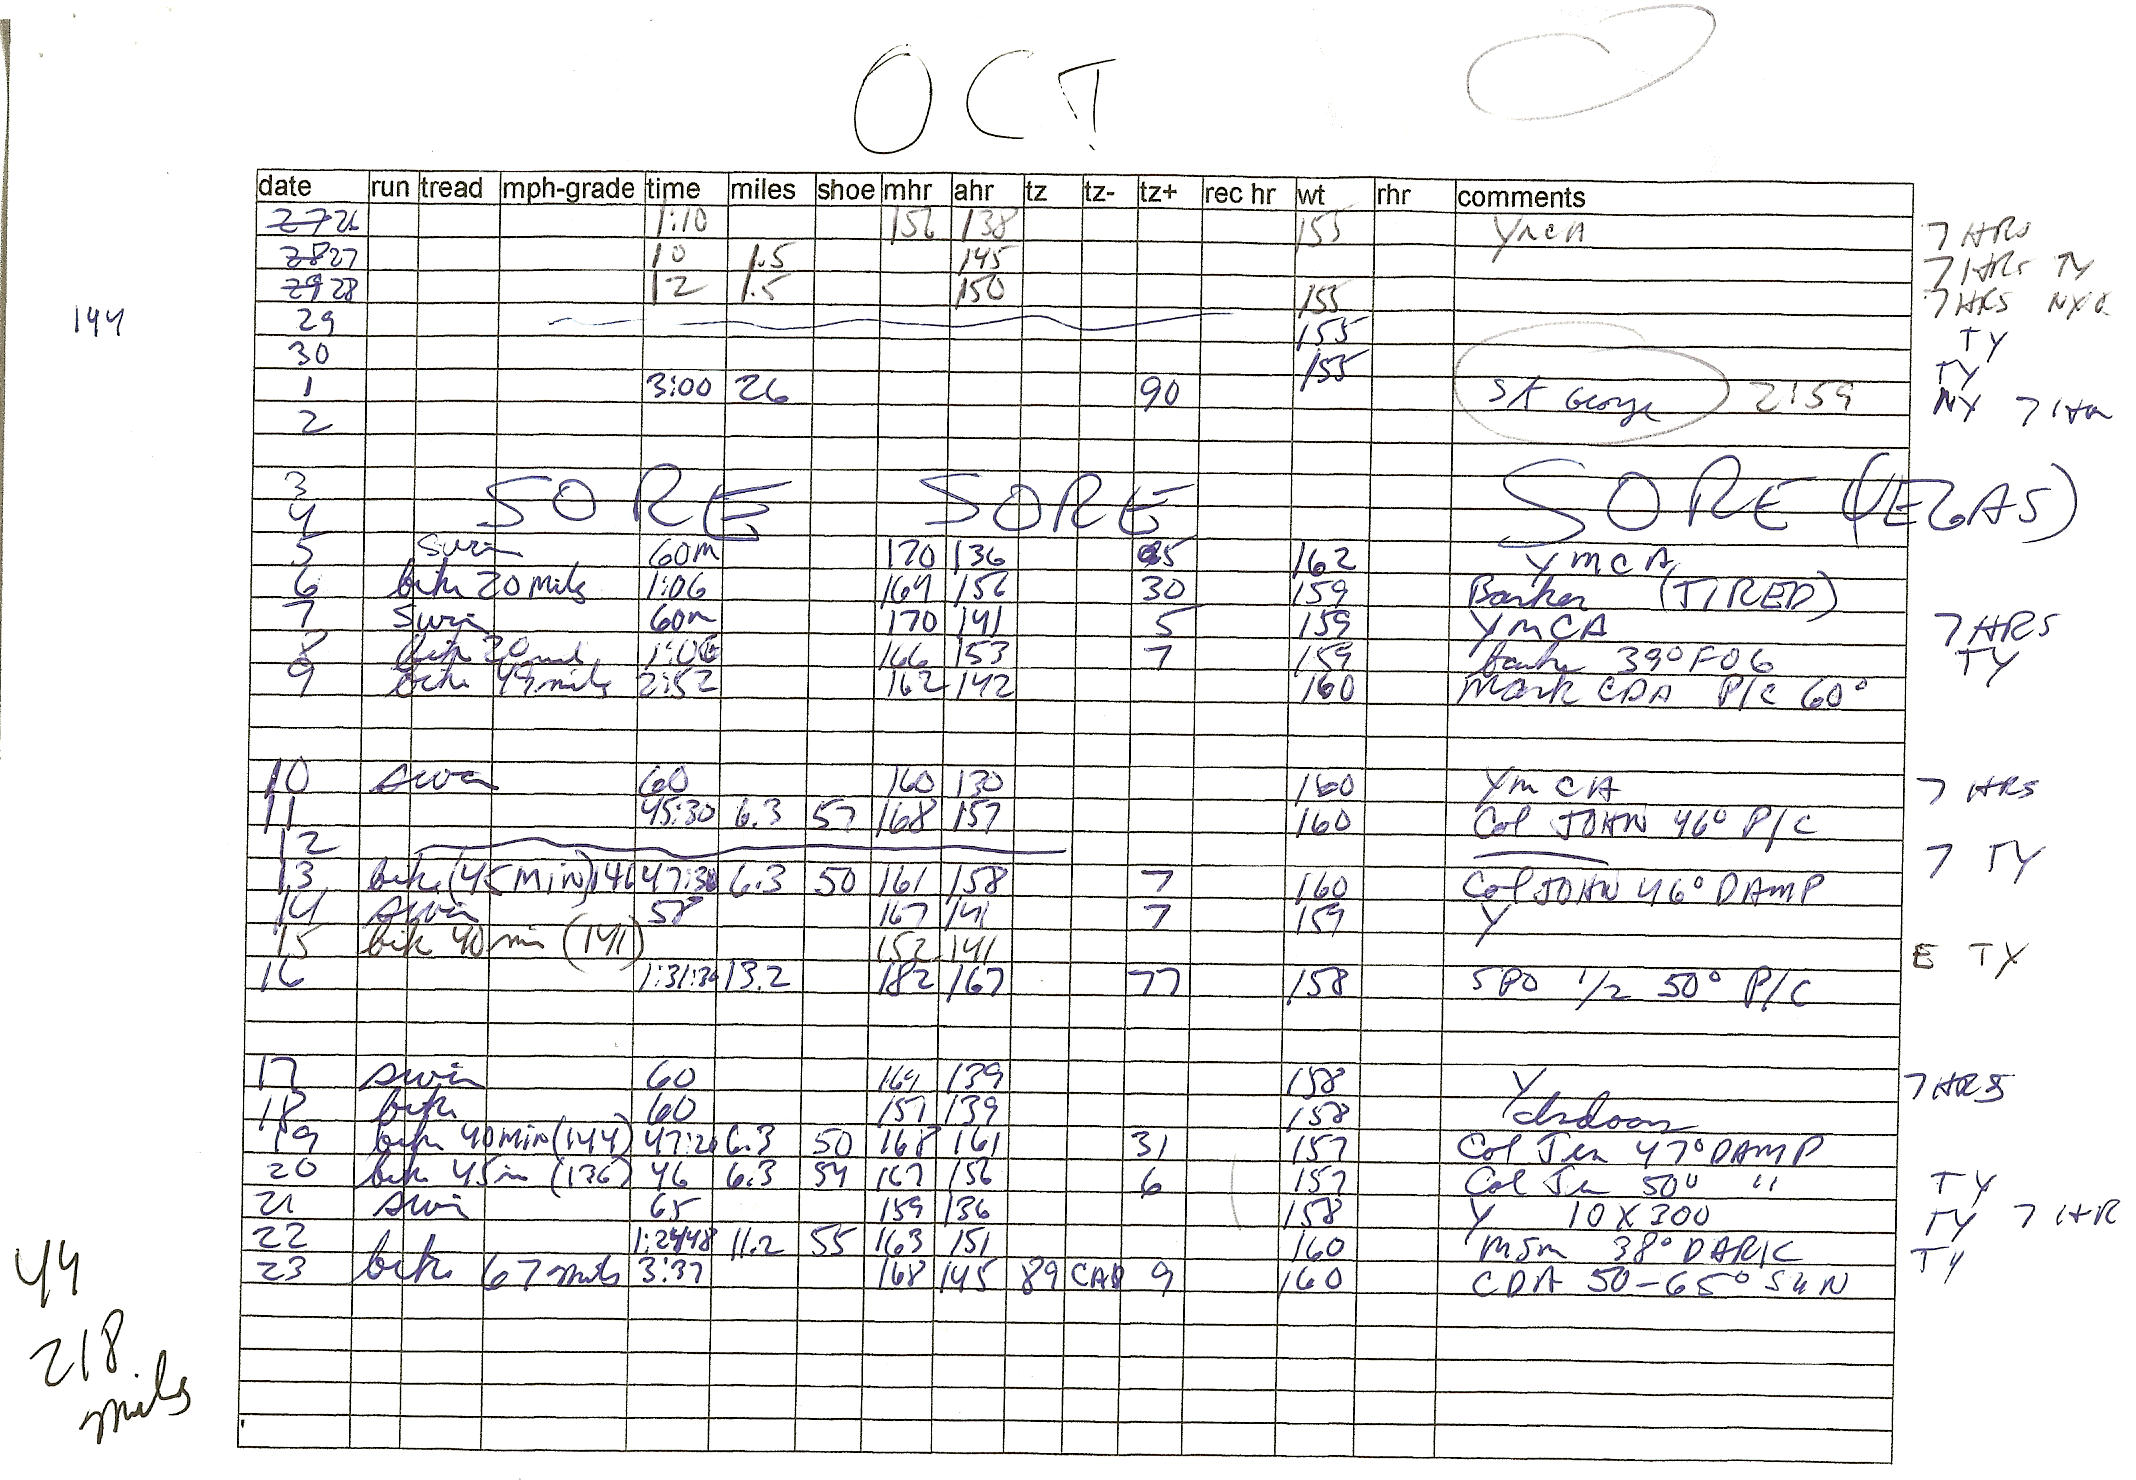 OCT
date run tread mph-grade time miles shoe mhr ahr tz tz- tz+ rec hr wt rhr comments
27 26 1:10 156 138 155 YMCA 7 HRS
28 27 10 1.5 145 7 HRS TY
29 28 12 1.5 150 155 7 HRS
144 29 155 TY
30 155 TY
1 3:00 26 90 St George 2:59 NY 7 HR
2
3 SORE SORE SORE (VEGAS)
4
5 Swim 60m 170 136 5 162 YMCA
6 bike 20 miles 1:06 164 156 30 159 Barker (TIRED)
7 Swim 60m 170 141 5 159 YMCA 7 HRS
8 bike 20 mil 1:06 166 153 7 159 39° FOG TY
9 bike 49 miles 2:52 162 142 160 Mark CDA P/C 60°
10 swim 60 160 130 160 YMCA 7 HRS
11 45:30 6.3 57 168 157 160 Col JOHN 46° P/C
12 7 TY
13 bike (45 MIN) 146 47:30 6.3 50 161 158 7 160 Col JOHN 46° DAMP
14 swim 58 167 141 7 159 Y
15 bike 40 min (141) 152 141 E TY
16 1:31:30 13.2 182 167 77 158 SPO 1/2 50° P/C
17 swim 60 164 139 158 Y 7 HRS
18 bike 60 157 139 158
19 bike 40 MIN (144) 47:20 6.3 50 168 161 31 157 Col Jen 47° DAMP
20 bike 45 in (136) 46 6.3 54 167 156 6 157 Col Jen 50° " TY
21 swim 65 159 136 158 Y 10 X 300 TY 7 HR
22 1:24:48 11.2 55 163 151 160 MSM 38° DARK TY
23 bike 67 miles 3:37 168 145 89 CAD 9 160 CDA 50-65° SUN
44
218
miles